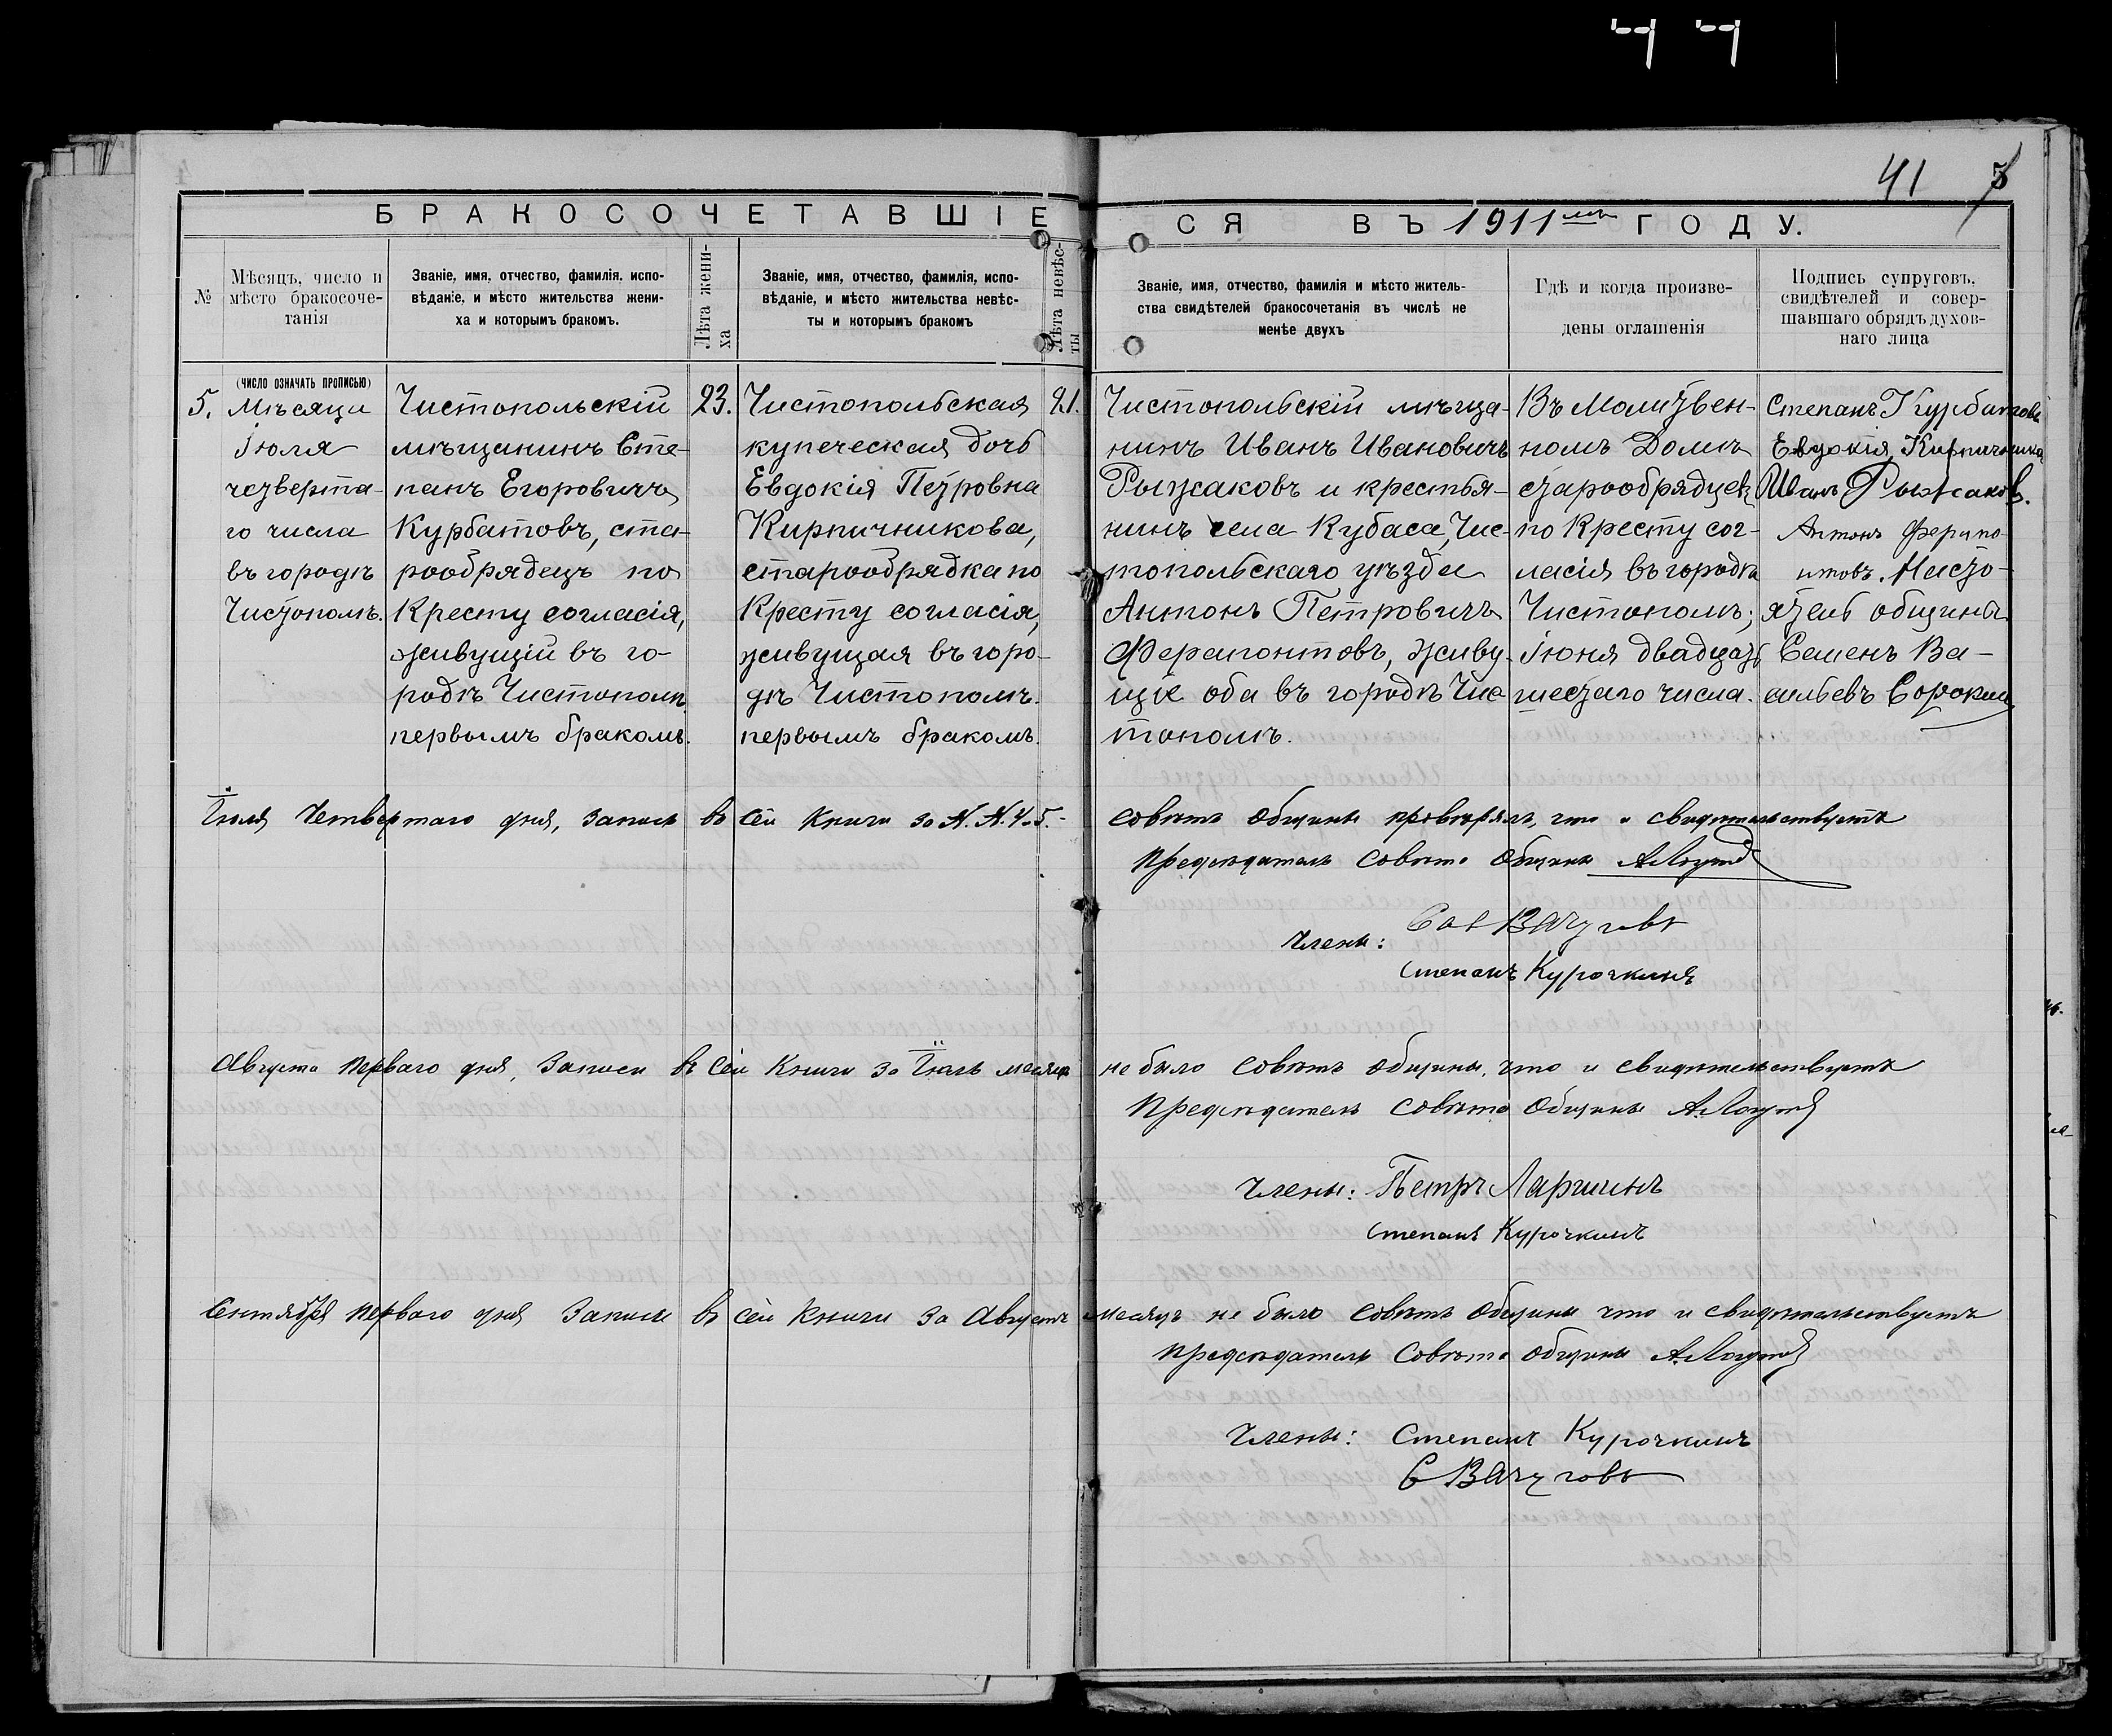 41 5
БРАКОСОЧЕТАВШІЕСЯ ВЪ 1911мъ ГОДУ.
№
Мѣсяцъ, число и
мѣсто бракосоче-
танія
Званіе, имя, отчество, фамилія, испо-
вѣданіе, и мѣсто жительства жени-
ха и которымъ бракомъ.
Лѣта жени-
ха
Званіе, имя, отчество, фамилія, испо-
вѣданіе, и мѣсто жительства невѣс-
ты и которымъ бракомъ
Лѣта невѣс-
ты
Званіе, имя, отчество, фамилія и мѣсто житель-
ства свидѣтелей бракосочетанія въ числѣ не
менѣе двухъ
Гдѣ и когда произве-
дены оглашенія
Подпись супруговъ,
свидѣтелей и совер-
шавшаго обрядъ духов-
наго лица
(ЧИСЛО ОЗНАЧАТЬ ПРОПИСЬЮ)
5.
Мѣсяца
Іюля
четверта-
го числа
въ городѣ
Чистополѣ.
Чистопольскій
мѣщанинъ Сте-
панъ Егоровичъ
Курбатовъ, ста-
рообрядецъ по
Кресту согласія,
живущій въ го-
родѣ Чистополѣ
первымъ бракомъ.
23.
Чистопольская
купеческая дочь
Евдокія Петровна
Кирпичникова,
старообрядка по
Кресту согласія,
живущая въ горо-
дѣ Чистополѣ.
первымъ бракомъ.
21.
Чистопольскій мѣща-
нинъ Иванъ Ивановичъ
Рыжаковъ и крестья-
нинъ села Кубаса, Чис-
топольскаго уѣзда
Антонъ Петровичъ
Ферапонтовъ, живу-
щіе оба въ городѣ Чис-
тополѣ.
Въ Молитвен-
номъ Домѣ
старообрядцевъ
по Кресту сог-
ласія въ городѣ
Чистополѣ;
Іюня двадцать
шестаго числа.
Степанъ Курбатовъ
Евдокія Кирпичникова
Иванъ Рыжаковъ.
Антонъ Ферапо-
нтовъ. Насто-
ятель общины
Семенъ Ва-
сильевъ Сорокин
Іюля Четвертаго дня, записи въ сей книги за N.N. 4 и 5.- совѣтъ общины провѣрялъ, что и свидѣтельствуетъ
Предсѣдатель Совѣта Общины
Члены:
Степанъ Курочкинъ
Августа перваго дня, Записи въ сей Книги за Іюль месяцъ не было совѣтъ общины, что и свидѣтельствуетъ
Предсѣдатель Совѣта Общины
Члены: Петръ Ларшинъ
Степанъ Курочкинъ
Сентября перваго дня Записи въ сей Книги За Августъ месяцъ не было совѣтъ Общины что и свидѣтельствуетъ
Предсѣдатель Совѣта Общины
Члены: Степанъ Курочкинъ